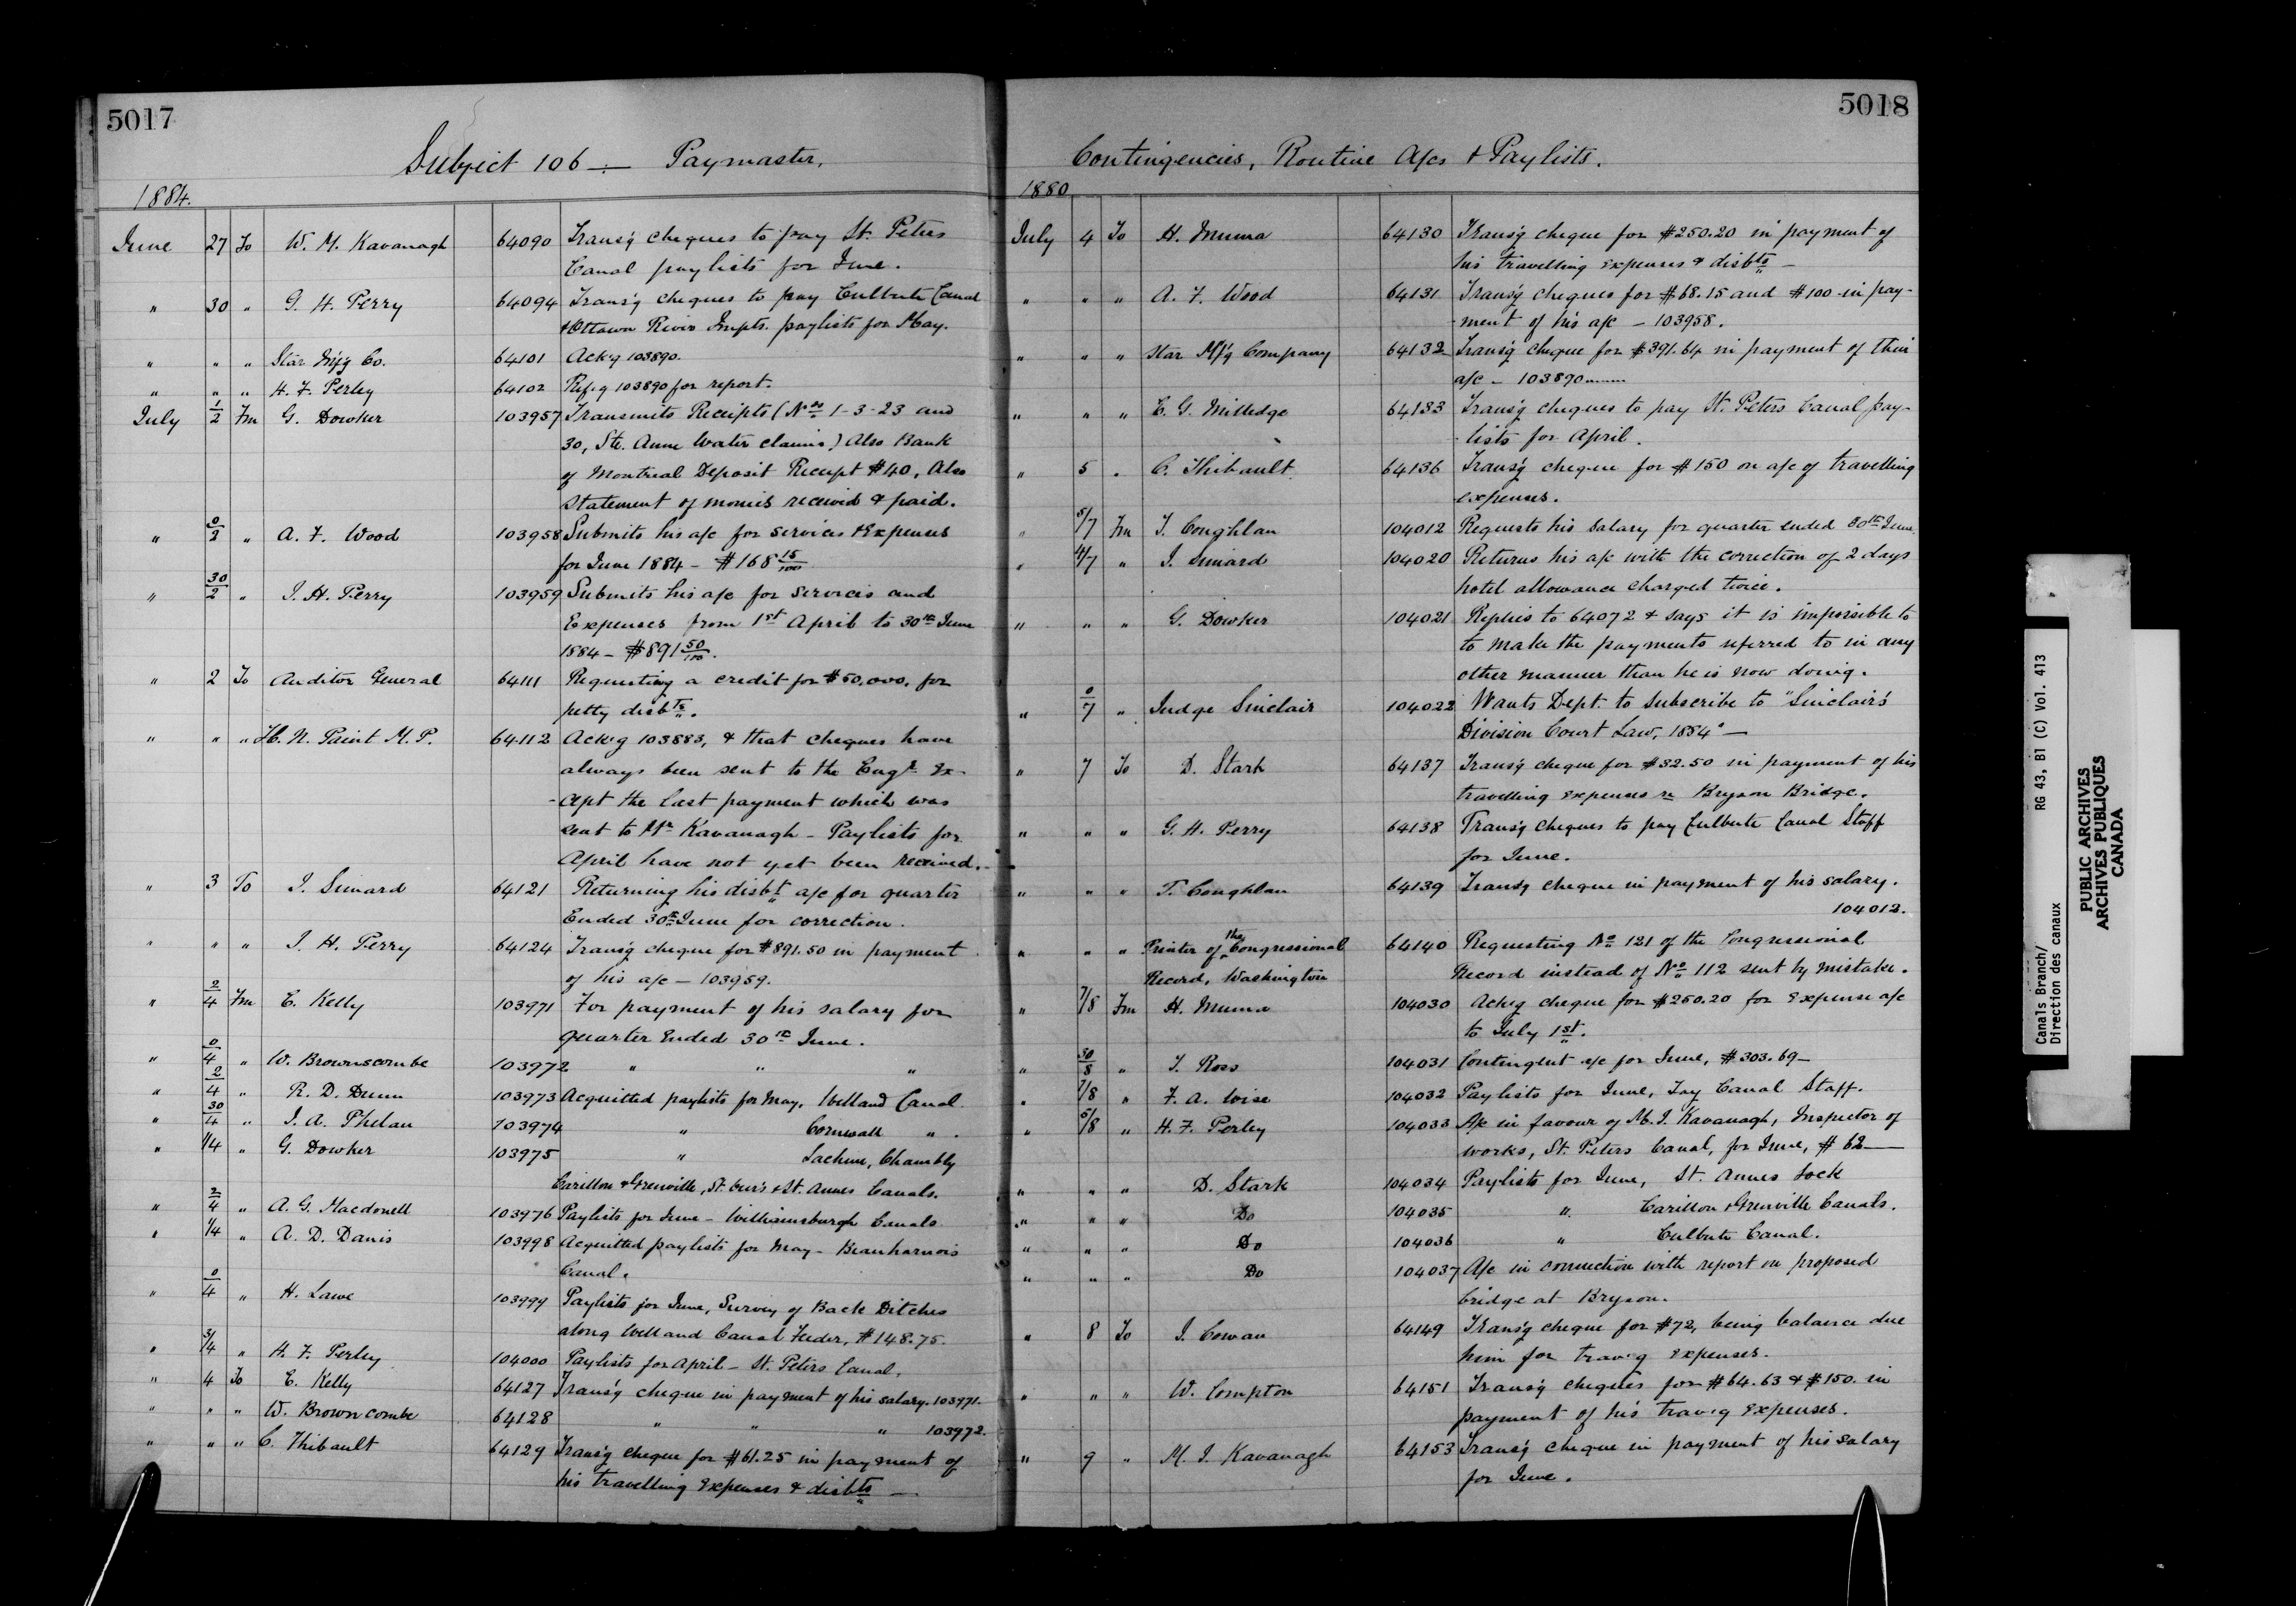 5017
Subject 106 — Paymaster.
1884.
June 27 To W. M. Kavanagh 64090 Trans'g cheques to pay St. Peters
Canal paylists for June.
" 30 " G. H. Perry 64094 Trans'g cheques to pay Culbute Canal
& Ottawa River Impts. paylists for May.
" " " Star M'f'g Co. 64101 Ack'g 103890.
" " " H. F. Perley 64102 Ref'g 103890 for report.
July 1/2 Fm G. Dowker 103957 Transmits Receipts (Nos 1-3-23 and
30, Ste. Anne Water claims) Also Bank
of Montreal Deposit Receipt $40, Also
Statement of monies received & paid.
" 0/2 " A. F. Wood 103958 Submits his a/c for services & Expenses
for June 1884 - $168 15/100
" 30/2 " J. H. Perry 103959 Submits his a/c for services and
Expenses from 1st April to 30th June
1884 - $891 50/100.
" 2 To Auditor General 64111 Requesting a credit for $50,000. for
petty disbts.
" " " H. N. Paint M.P. 64112 Ack'g 103883, & that cheques have
always been sent to the Engr. Ex-
-cept the last payment which was
sent to Mr Kavanagh - Paylists for
April have not yet been received.
" 3 To J. Simard 64121 Returning his disbt a/c for quarter
Ended 30th June for correction.
" " " J. H. Perry 64124 Trans'g cheque for $891.50 in payment
of his a/c - 103959.
" 2/4 Fm E. Kelly 103971 For payment of his salary for
quarter Ended 30th June.
" 0/4 " W. Brownscombe 103972 " " "
" 2/4 " R. D. Dunn 103973 Acquitted paylists for May, Welland Canal
" 30/4 " J. A. Phelan 103974 " Cornwall " .
" 1/4 " G. Dowker 103975 " Lachine, Chambly
Carillon & Grenville, St. Ours & St. Annes Canals.
" 2/4 " A. G. Macdonell 103976 Paylists for June - Williamsburgh Canals
" 1/4 " A. D. Danis 103998 Acquitted paylists for May - Beauharnois
Canal.
" 0/4 " H. Lawe 103999 Paylists for June, Survey of Back Ditches
along Welland Canal Feeder, $148.75.
" 3/4 " H. F. Perley 104000 Paylists for April - St. Peters Canal.
" 4 To E. Kelly 64127 Trans'g cheque in payment of his salary. 103971.
" " " W. Browncombe 64128 " " " 103972.
" " " C. Thibault 64129 Trans'g cheque for $61.25 in payment of
his travelling Expenses & disbts —
5018
Contingencies, Routine A/cs & Paylists.
1880
July 4 To H. Muma 64130 Trans'g cheque for $250.20 in payment of
his travelling expenses & disbts —
" " " A. F. Wood 64131 Trans'g cheques for $68.15 and $100 in pay-
-ment of his a/c - 103958.
" " " Star M'f'g Company 64132 Trans'g cheque for $391.64 in payment of their
a/c - 103890
" " " E. G. Milledge 64133 Trans'g cheques to pay St. Peters Canal pay-
-lists for April.
" 5 " C. Thibault 64136 Trans'g cheque for $150 on a/c of travelling
expenses.
" 5/7 Fm T. Coughlan 104012 Requests his salary for quarter ended 30th June
" 4/7 " J. Simard 104020 Returns his a/c with the correction of 2 days
hotel allowance charged twice.
" " " G. Dowker 104021 Replies to 64072 & says it is impossible to
to make the payments referred to in any
other manner than he is now doing.
" 0/7 " Judge Sinclair 104022 Wants Dept. to subscribe to "Sinclair's
Division Court Law, 1884" —
" 7 To D. Stark 64137 Trans'g cheque for $32.50 in payment of his
travelling expenses re Bryson Bridge.
" " " G. H. Perry 64138 Trans'g cheques to pay Culbute Canal Staff
for June.
" " " T. Coughlan 64139 Trans'g cheque in payment of his salary.
104012.
" " " Printer of the Congressional 64140 Requesting No 121 of the Congressional
Record, Washington Record instead of No 112 sent by mistake.
" 7/8 Fm H. Muma 104030 Ack'g cheque for $250.20 for Expense a/c
to July 1st.
" 30/8 " J. Ross 104031 Contingent a/c for June, $303.69 —
" 7/8 " F. A. Wise 104032 Paylists for June, Tay Canal Staff.
" 5/8 " H. F. Perley 104033 A/c in favour of M. J. Kavanagh, Inspector of
works, St. Peters Canal, for June, $62 —
" " " D. Stark 104034 Paylists for June, St. Annes Lock
" " " Do 104035 " Carillon & Grenville Canals.
" " " Do 104036 " Culbute Canal.
" " " Do 104037 A/c in connection with report on proposed
bridge at Bryson.
" 8 To J. Cowan 64149 Trans'g cheque for $72, being balance due
him for trav'g expenses.
" " " W. Compton 64151 Trans'g cheques for $64.63 & $150. in
payment of his trav'g Expenses.
" 9 " M. J. Kavanagh 64153 Trans'g cheque in payment of his salary
for June.
Canals Branch/ RG 43, B1 (C) Vol. 413
Direction des canaux
PUBLIC ARCHIVES
ARCHIVES PUBLIQUES
CANADA